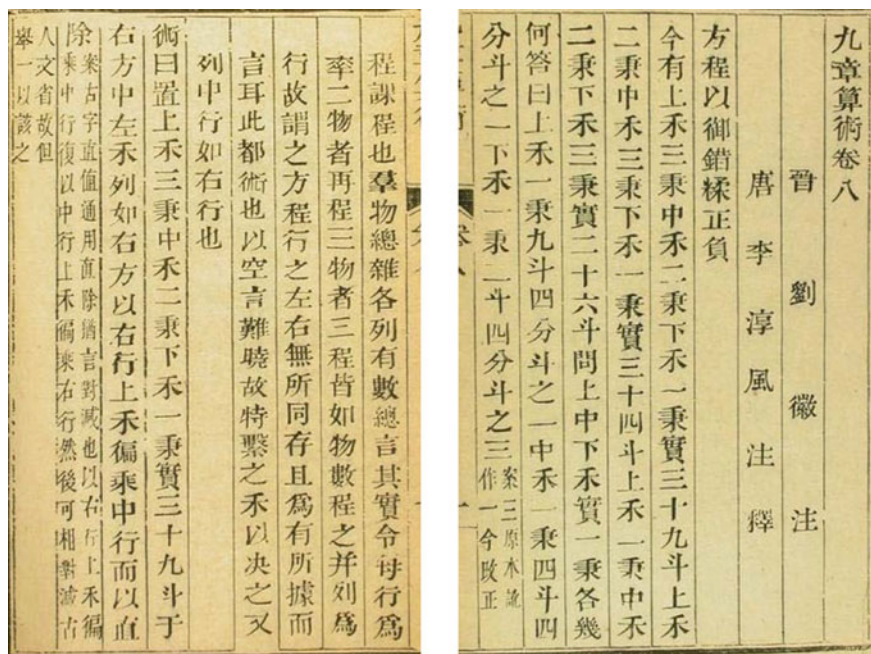 九章算術卷八
晉劉徽注
唐李淳風注釋
方程以御錯糅正負
今有上禾三秉中禾二秉下禾一秉實三十九斗上禾
二秉中禾三秉下禾一秉實三十四斗上禾一秉中禾
二秉下禾三秉實二十六斗問上中下禾實一秉各幾
何答曰上禾一秉九斗四分斗之一中禾一秉四斗四
分斗之一下禾一秉二斗四分斗之三
案三原本訛
作一今改正
程課程也羣物總雜各列有數總言其實令每行爲
率二物者再程三物者三程皆如物數程之并列爲
行故謂之方程行之左右無所同存且爲有所據而
言耳此都術也以空言難曉故特繫之禾以決之又
列中行如右行也
術曰置上禾三秉中禾二秉下禾一秉實三十九斗于
右方中左禾列如右方以右行上禾徧乘中行而以直
除
案古字直值通用直除猶言對減也以右行上禾徧
乘中行復以中行上禾徧乘右行然後可相對減古
人文省故但
舉一以該之